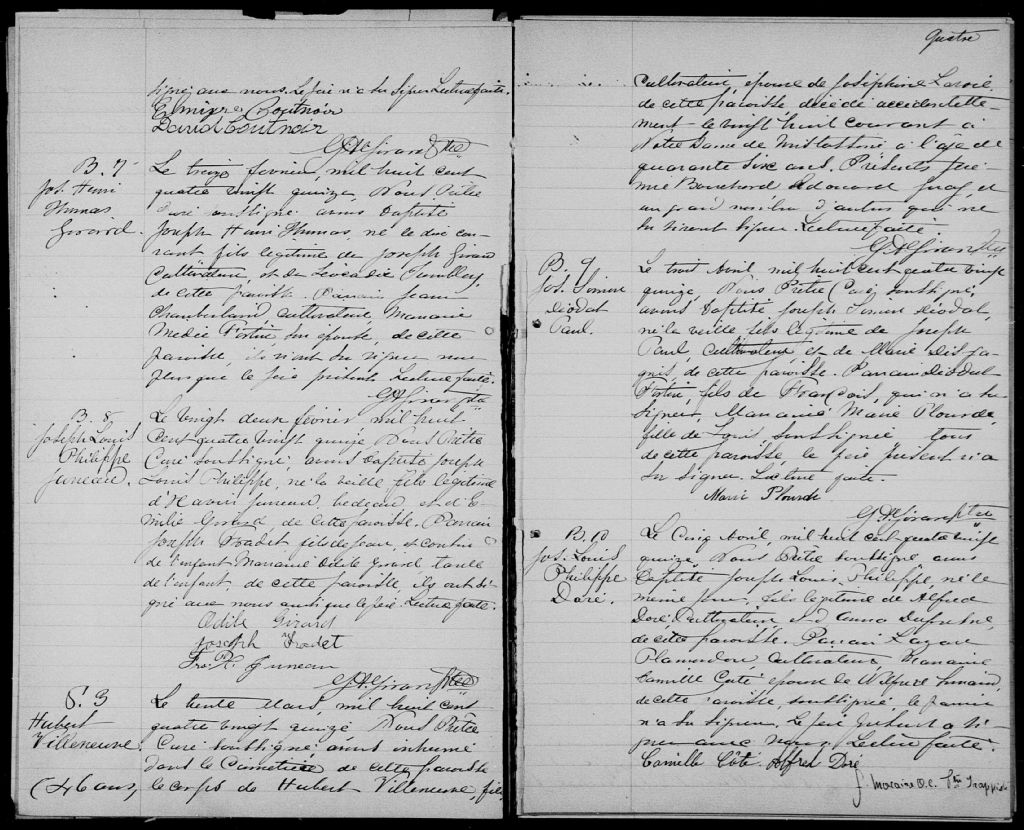 signé avec nous. Le père n'a su signer. Lecture faite.
Elmire Coutnoir
David Coutnoir
G. A. Girard Ptre
B. 7
Jos. Henri
Thomas
Girard.
Le treize février, mil huit cent
quatre vingt quinze, Nous Prêtre
Curé soussigné avons baptisé
Joseph Henri Thomas, né le dix cou-
rant, fils légitime de Joseph Girard
Cultivateur et de Léocadie
de cette paroisse. Parrain Jean
Chamberland cultivateur, Marraine
Fortin, son épouse, de cette
paroisse, ils n'ont su signer non
plus que le père présents. Lecture faite.
G. A. Girard Ptre
B. 8.
Joseph Louis
Philippe
Juneau.
Le vingt deux février mil huit
Cent quatre vingt quinze Nous Prêtre
Curé soussigné, avons baptisé Joseph
Louis Philippe, né la veille fils légitime
d'Xavier Juneau, bedeau, et d'E-
milie Girard de cette paroisse. Parrain
Joseph Fradet fils de Jean, et cousin
de l'enfant Marraine Odile Girard tante
de l'enfant, de cette paroisse, ils ont si-
gné avec nous ainsi que le père. Lecture faite.
Odile Girard
Joseph Fradet
Frs. X. Juneau
G. A. Girard Ptre
S. 3
Hubert
Villeneuve.
(46 ans,
Le trente Mars, mil huit cent
quatre vingt quinze Nous Prêtre
Curé soussigné avons inhumé
dans le Cimetière de cette paroisse
le corps de Hubert Villeneuve, fils,
quatre
Cultivateur, époux de Joséphine Lavoie,
de cette paroisse, décédé accidentelle
ment le vingt huit courant à
Notre Dame de Mistassini à l'âge de
quarante six ans. Présents Jéré-
mie Bouchard Edouard et
un grand nombre d'autres qui ne
su signer. Lecture faite.
G. A. Girard Ptre
B. 9
Jos. Simon
Déodat
Paul.
Le trois Avril, mil huit cent quatre vingt
quinze, Nous Prêtre Curé soussigné,
avons baptisé Joseph Simon Déodat,
né la veille fils légitime de Joseph
Paul, cultivateur et de Marie Desga-
gnés, de cette paroisse. Parrain Déodat
Fortin, fils de François, qui n'a su
signer, Marraine Marie Plourde,
fille de Louis, soussignée tous
de cette paroisse, le père présent n'a
su signer. Lecture faite.
Marie Plourde
G. A. Girard Ptre
B. 10
Jos. Louis
Philippe
Doré.
Le Cinq Avril, mil huit cent quatre vingt
quinze, Nous Prêtre soussigné avons
baptisé Joseph Louis Philippe, né le
même jour, fils légitime de Alfred
Doré, Cultivateur et d'Anna Dufresne,
de cette paroisse. Parrain Lazare
Plamondon, cultivateur, Marraine
Camille Côté épouse de Wilfred
de cette paroisse, soussignée, le parrain
n'a su signer. Le père présent a si-
gner avec nous. Lecture faite.
Camille Côté Alfred Doré
f. Macaire O.C. Ptre Trappiste